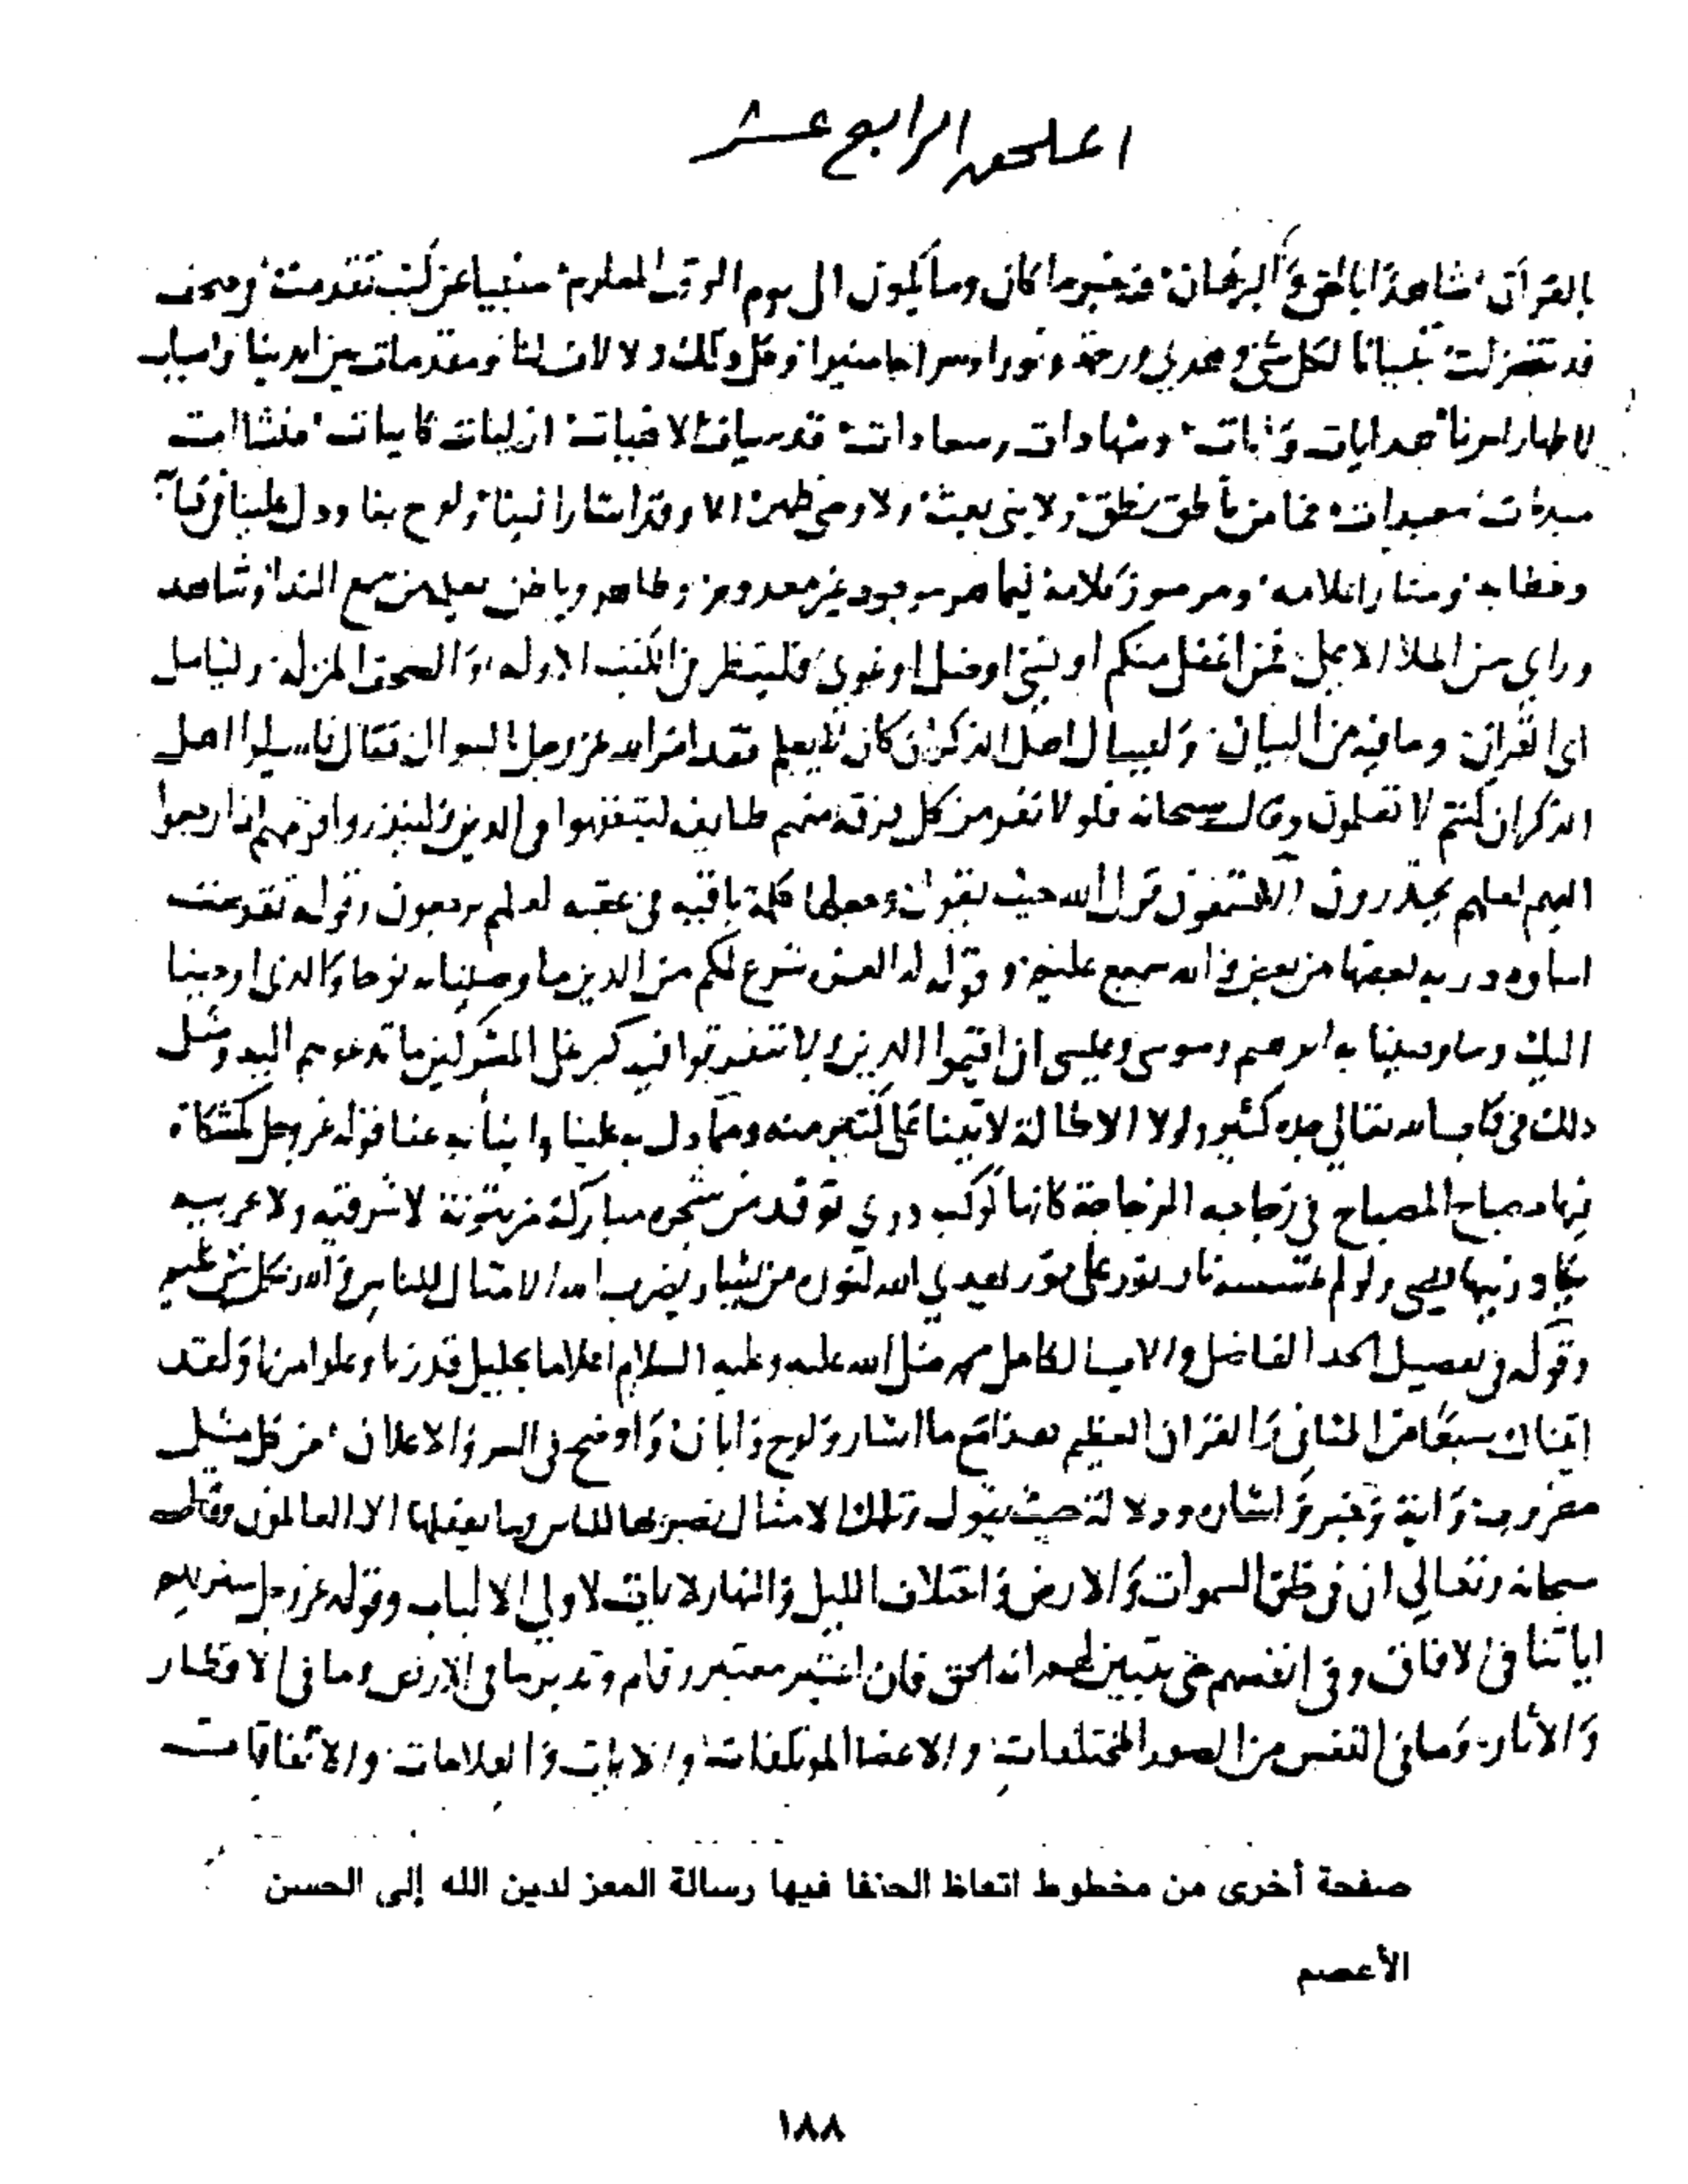 الملحق الرابع عشر
بالقرآن شاهدنا بالحق والبرهان فخبر ما كان وما يكون الى يوم الوقت المعلوم منبيا عن كتب تقدمت وصحف
قد تنزلت تبيانا لكل شي وهدي ورحمة ونورا وسراجا منيرا وكل ذلك دلالات لنا ومقدمات بين ايدينا واسباب
لاظهار امرنا هدايات وايات وشهادات وسعادات قدسيات الاهيات ازليات كاينات منشاات
مبديات معيدات فما من ناطق نطق ولا نبي بعث ولا وصي ظهر الا وقد اشار الينا ولوح بنا ودل علينا في كتابه
وخطابه ومنار اعلامه ومرموز كلامه فيما هو موجود غير معدوم وظاهر وباطن يعلمه من سمع الندا وشاهد
وراي من الملا الاعلى فمن اغفل منكم او نسي او ضل او غوي فلينظر في الكتب الاوله والصحف المنزله وليتامل
اي القران وما فيه من البيان وليسال اهل الذكر ان كان لا يعلم فقد امر الله عز وجل بالسوال فقال فاسيلوا اهل
الذكر ان كنتم لا تعلمون وقال سبحانه فلو لا نفر من كل فرقة منهم طايفه ليتفقهوا في الدين ولينذروا قومهم اذا رجعوا
اليهم لعلهم يحذرون الا تسمعون قول الله حيث يقول وجعلها كلمة باقيه في عقبه لعلهم يرجعون وقوله تقدست
اسماوه ذريه بعضها من بعض والله سميع عليم وقوله له العز شرع لكم من الدين ما وصينا به نوحا والذى اوحينا
اليك وما وصينا به ابرهيم وموسى وعيسى ان اقيموا الدين ولا تتفرقوا فيه كبر على المشركين ما تدعوهم اليه ومثل
ذلك في كتاب الله تعالي جده كثير ولولا الاطالة لاتينا على كثير منه ومما دل به علينا وانبا به عنا قوله عز وجل كمشكاة
فيها مصباح المصباح في زجاجه الزجاجة كانها كوكب دري توقد من شجره مباركة زيتونة لا شرقيه ولا غربيه
يكاد زيتها يضى ولو لم تمسسه نار نور على نور يهدي الله لنوره من يشا ويضرب الله الامثال للناس والله بكل شي عليم
وقوله في تفضيل الجد الفاضل والاب الكامل محمد صلى الله عليه وعليه السلام اعلاما بجليل قدرنا وعلو امرنا ولقد
اتيناك سبعا من المثاني والقران العظيم هذا مع ما اشار ولوح وابان واوضح في السر والاعلان من كل مثل
مضروب واية وخبر واشاره ودلالة حيث يقول وتلك الامثال نضربها للناس وما يعقلها الا العالمون وقال
سبحانه وتعالي ان في خلق السموات والارض واختلاف الليل والنهار لايات لاولي الالباب وقوله عز وجل سنريهم
اياتنا في الافاق وفي انفسهم حتى يتبين لهم انه الحق فان اعتبر معتبر وقام وتدبر ما في الارض وما في الاقطار
والاثار وما في النفس من الصور المختلفات والاعضا الموتلفات والايات والعلامات والاتفاقات
صفحة أخرى من مخطوط اتعاظ الحنفا فيها رسالة المعز لدين الله إلى الحسن
الأعصم
١٨٨